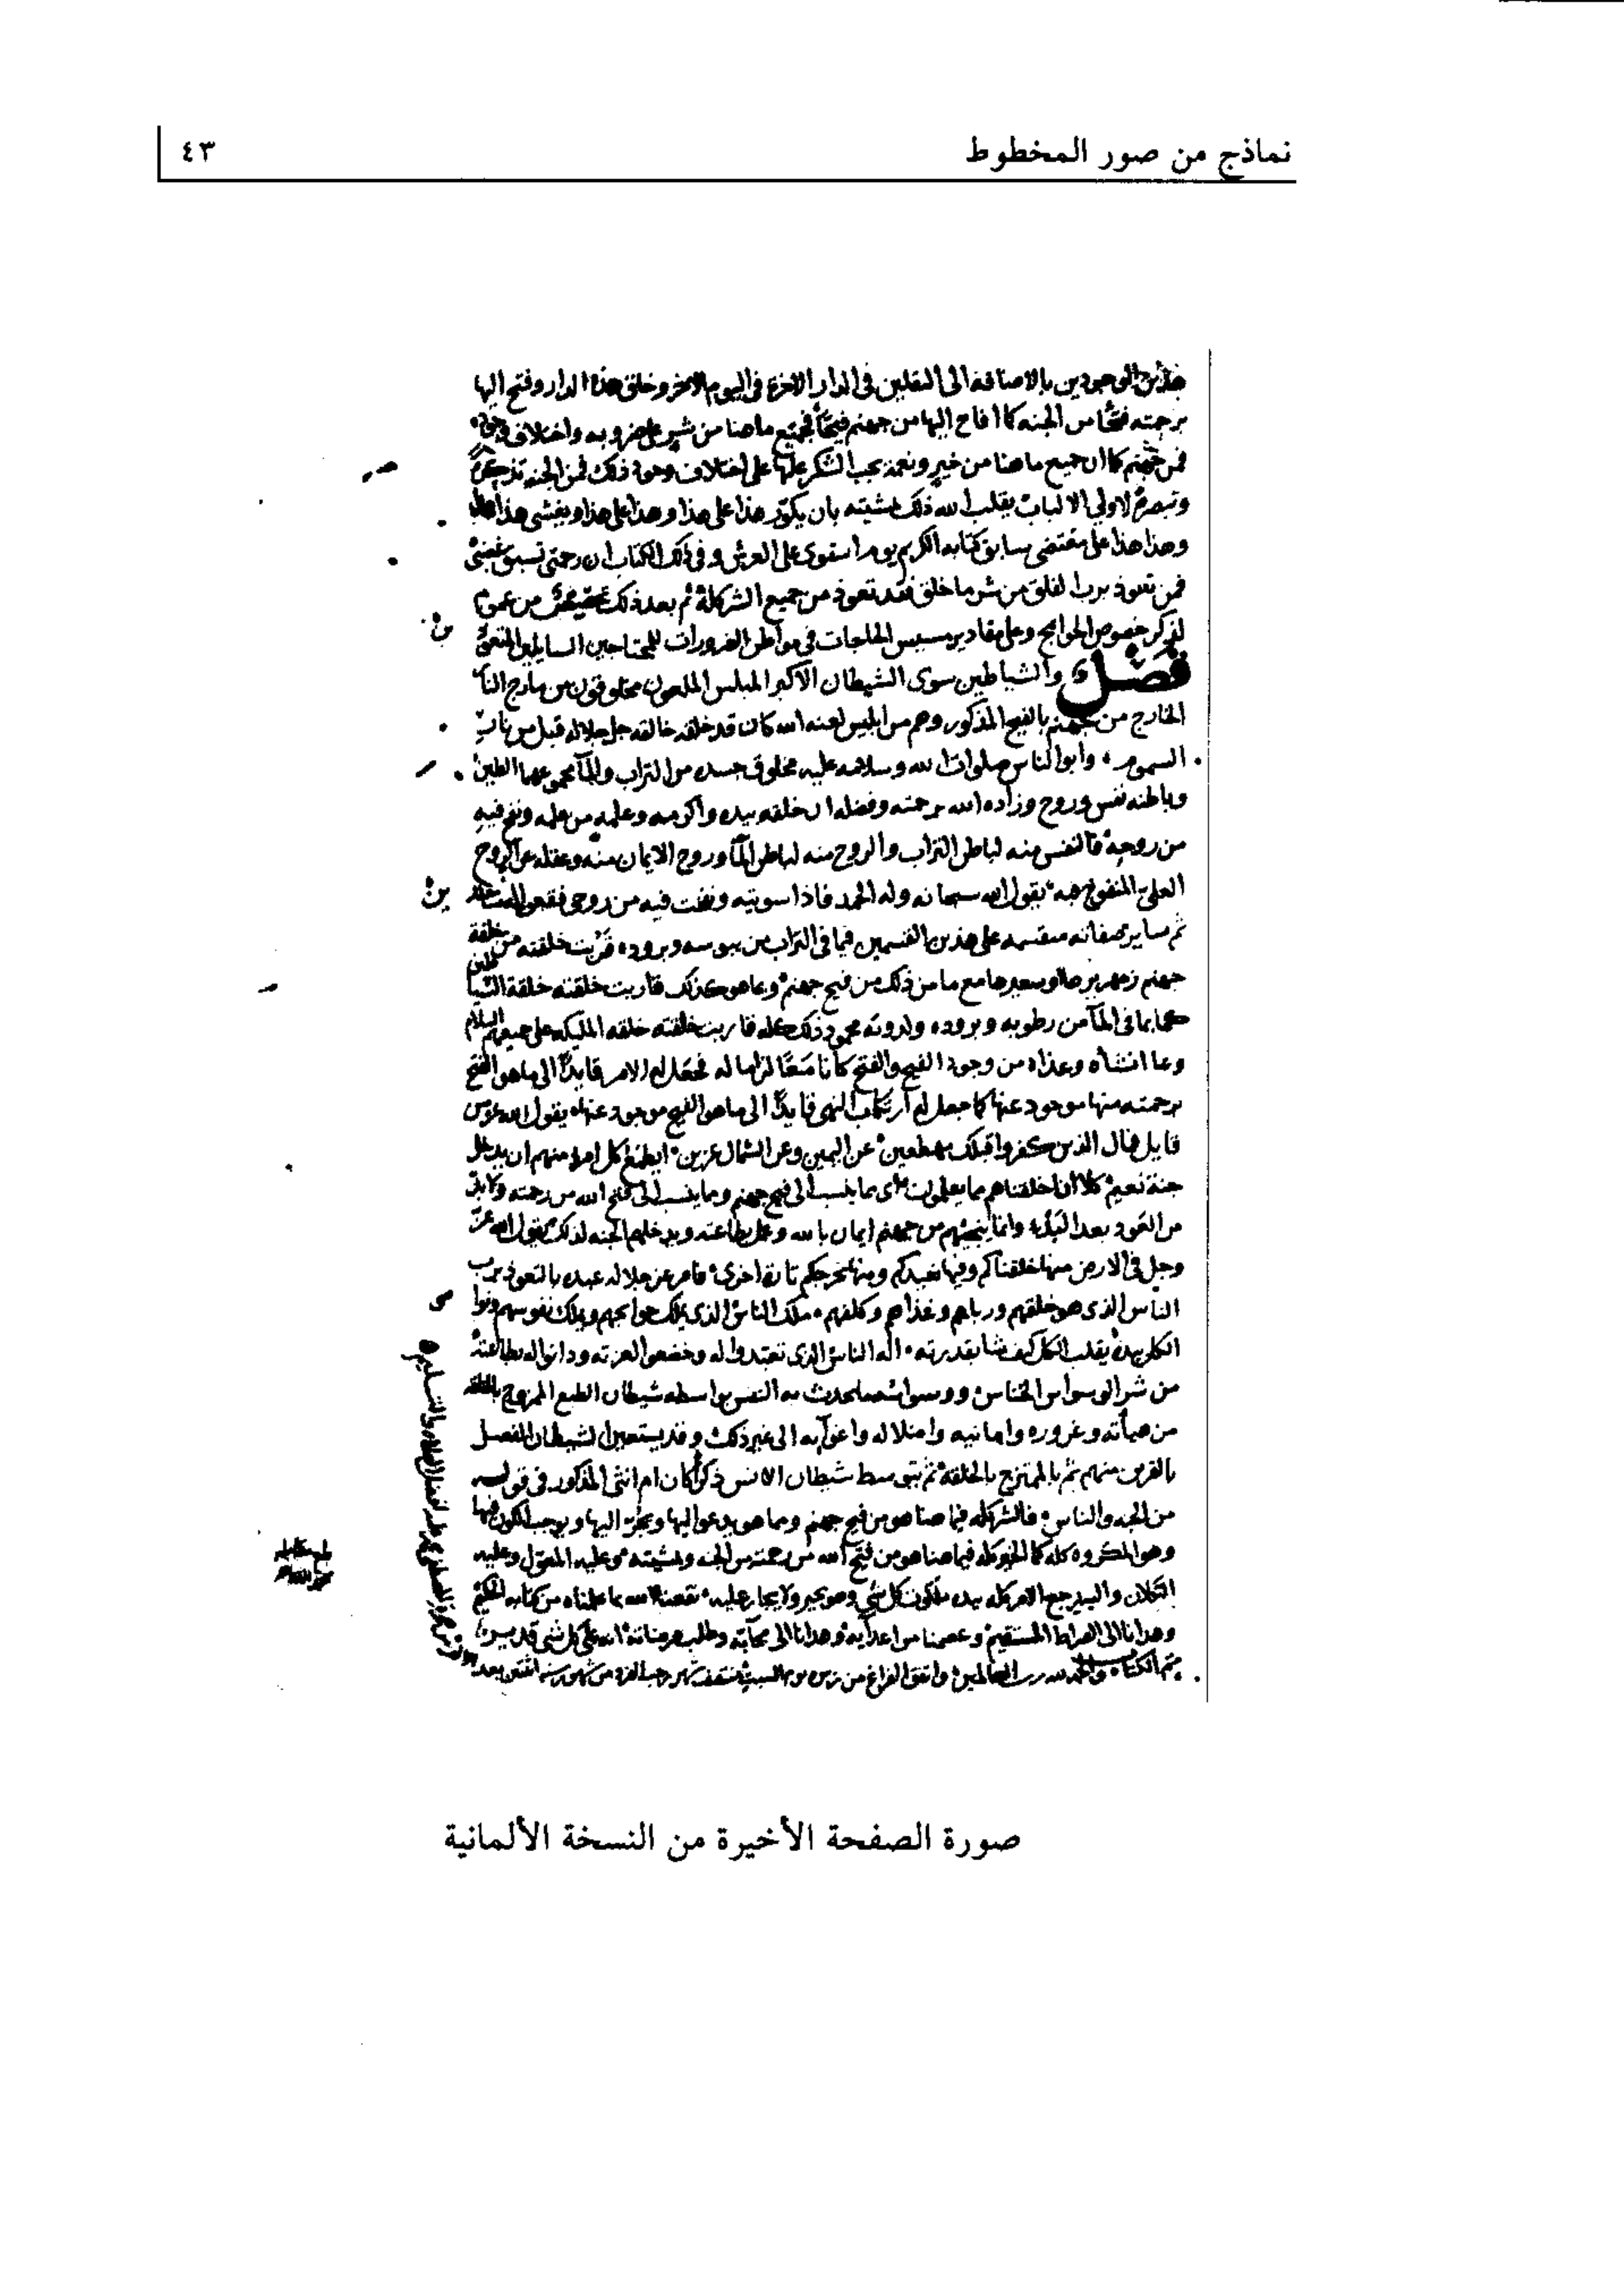 نماذج من صور المخطوط
٤٣
الموجودين بالاضافة الى الثقلين في الدار الاخرة في اليوم الاخر وخلق هذه الدار وفتح اليها
برحمته فتحا من الجنة كما افاح اليها من جهنم فيحا فجميع ما هنا من شر على ضروبه واختلاف
فمن جهنم كما ان جميع ما هنا من خير ونعمة يجب الشكر عليها على اختلاف وجوه ذلك فمن الجنة
وتبصرة لاولي الالباب يقلب الله ذلك بمشيته بان يكور هذا على هذا وهذا على هذا ويغشى هذا
وهذا هذا على مقتضى سابق كتابه الكريم يوم استوى على العرش وفي ذلك الكتاب ان رحمتي تسبق غضبي
فمن تعوذ برب الفلق من شر ما خلق فقد تعوذ من جميع الشر كله ثم بعد ذلك من عموم
خصوص الحوايج وعلى مقادير مسيس الحاجات في مواطن الضرورات للمحتاجين السايلين
فصل والشياطين سوى الشيطان الاكبر المبلس الملعون مخلوقون من مارج النار
الخارج من جهنم بالفيح المذكور وهم من ابليس لعنه الله كان قد خلقه خالقه جل جلاله قبل من نار
السموم وابو الناس صلوات الله وسلامه عليه مخلوق جسده من التراب والمآ مجموعهما الطين
وباطنه نفس وروح وزاده الله برحمته وفضله ان خلقه بيده واكرمه وعلمه من علمه ونفخ فيه
من روحه فالنفس منه لباطن التراب والروح منه لباطن المآ وروح الايمان منه وعقله عن الروح
العلي المنفوخ فيه يقول الله سبحانه وله الحمد فاذا سويته ونفخت فيه من روحي فقعوا له ساجدين
ثم ساير صفاته منقسمة على هذين القسمين فبما في التراب من يبوسه وبروده قربت خلقته من خلقة
جهنم زمهريرها وسعيرها مع ما من ذلك من فيح جهنم وبما هو كذلك قاربت خلقته خلقة الشياطين
كما بما في المآ من رطوبه وبروده ولدونه محمود ذلك كله قاربت خلقته خلقه المليكه على جميعهم السلام
وبما انشأه وغذاه من وجود الفيح والفتح كانا معا لزاما له فجعل له الامر قايدا الى ما هو الفتح
برحمته منها موجود عنها كما جعل له ارتكاب النهي قايدا الى ما هو الفيح موجود عنها يقول الله عز من
قايل فمال الذين كفروا قبلك مهطعين عن اليمين وعن الشمال عزين ايطمع كل امرء منهم ان يدخل
جنة نعيم كلا انا خلقناهم مما يعلمون اي مما ينسب الى فيح جهنم ومما ينسب الى فتح الله من رحمته ولا بد
من العود بعد البدأة وانما ينجيهم من جهنم ايمان بالله وعمل بطاعته ويدخلهم الجنه لذلك يقول الله عز
وجل في الارض منها خلقناكم وفيها نعيدكم ومنها نخرجكم تارة اخرى فامر عز جلاله عبده بالتعوذ برب
الناس الذي هو خلقهم ورباهم وغذاهم وكلفهم ملك الناس الذي يملك حوايجهم ويملك نفوسهم
الكل بيده يقلب الكل كيف يشا بقدرته اله الناس الذي تعبدوا له وخضعوا لعزته ودانوا له بطاعته
من شر الوسواس الخناس ووسواسه ما يحدث به النفس بواسطه شيطان الطبع الممزوج بالخلقه
من هيأته وغروره وامانيه واضلاله واغوآيه الى غير ذلك وقد يستعين الشيطان المنفصل
بالقرين منهم ثم بالممتزج بالخلقه ثم بتوسط شيطان الانس ذكرا كان ام انثى المذكور في قوله
من الجنه والناس فالشر كله فيما هنا هو من فيح جهنم ومما هو يدعو اليها ويجر اليها ويوجب الكون فيها
وهو المكروه كله كما الخير كله فيما هنا هو من فتح الله من رحمته من الجنه ومشيته وعليه المعول وعليه
التكلان واليه يرجع الامر كله بيده ملكوت كل شي وهو يجير ولا يجار عليه نفعنا الله بما علمناه من كتابه الحكيم
وهدانا الى الصراط المستقيم وعصمنا من اعدايه وهدانا الى محابه وطلب مرضاته انه على كل شي قدير
تم الكتاب والحمد لله رب العالمين واتفق الفراغ من يوم السبت منتصف شهر رجب الفرد من شهور سنه
صورة الصفحة الأخيرة من النسخة الألمانية